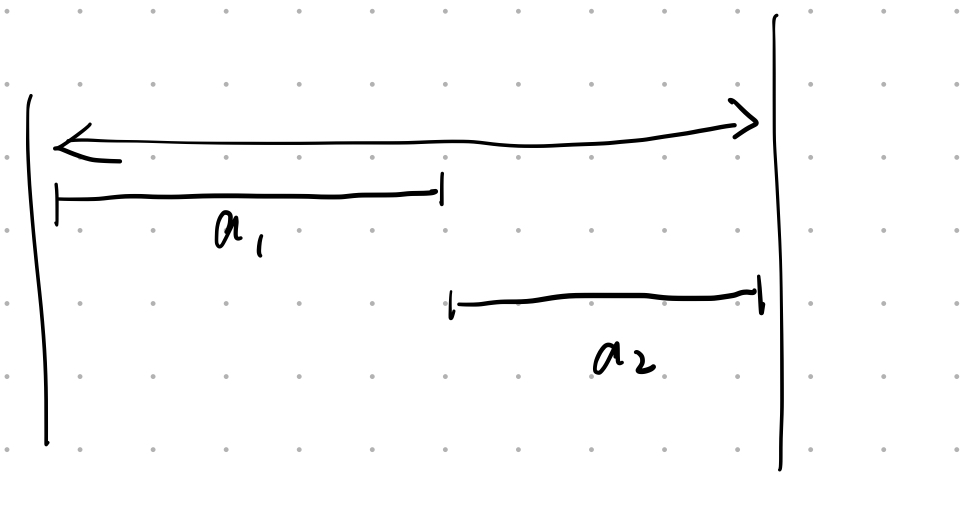 a₁
a₂